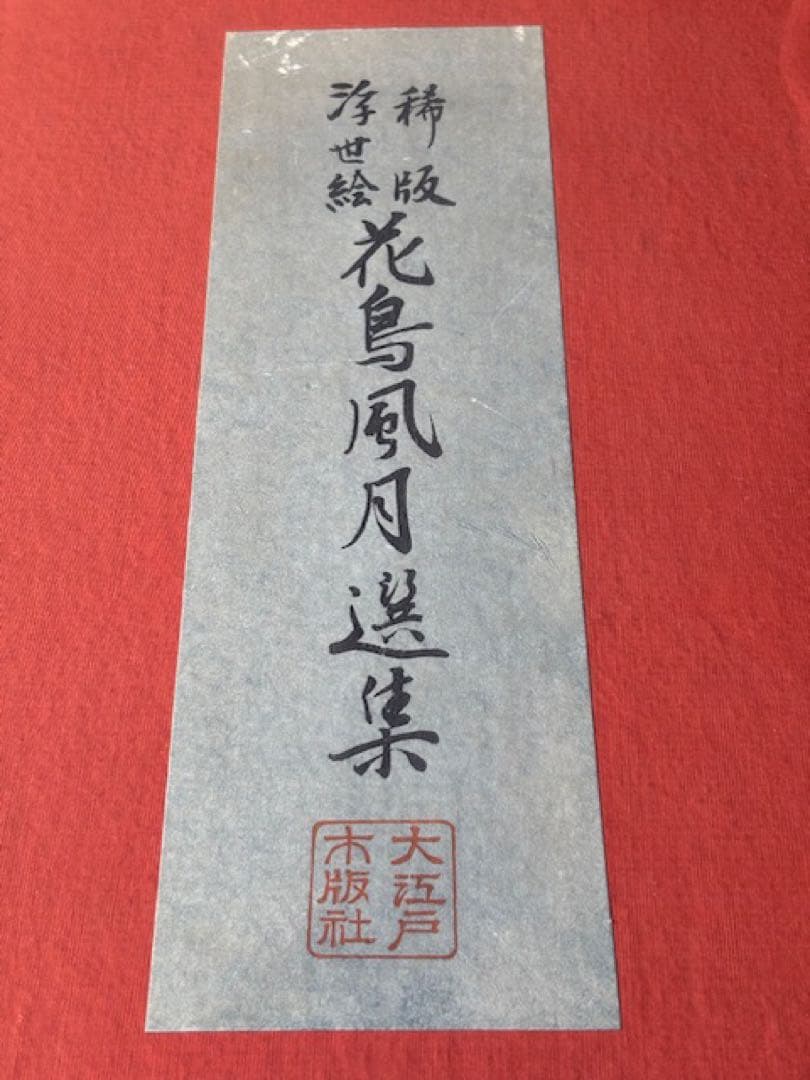 稀版
浮世絵
花鳥風月選集
大江戸
木版社